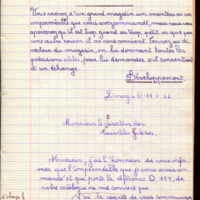 Vous recevez d'un grand magasin un manteau ou un
imperméable que vous avez commandé, mais vous vous
apercevez qu'il est trop grand ou trop petit ou que pour
une autre raison il ne vous convient. Écrivez au di-
recteur du magasin, en lui donnant toutes les
précisions utiles, pour lui demander s'il consentirait
à un échange.
Développement
Limoges le
Monsieur le Directeur des
Nouvelles Galeries
Monsieur, j'ai l'honneur de vous infor-
mer que l'imperméable que je vous avais com-
mandé et qui porte la référence D.
de votre catalogue ne me convient pas
J'ai le regret de vous communiquer